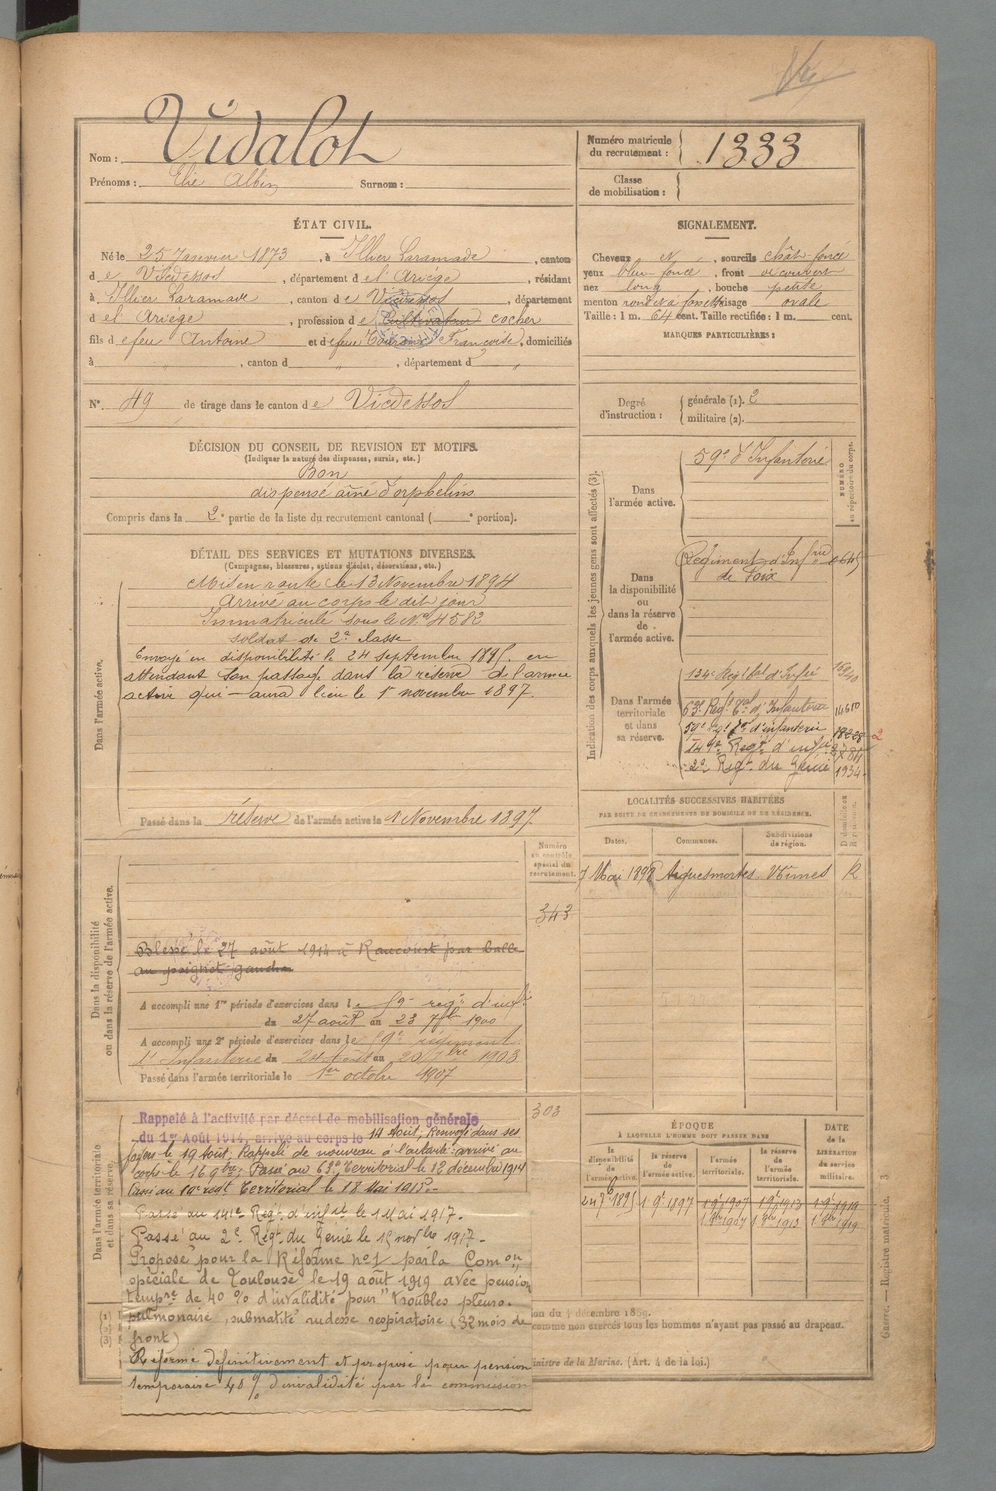 Nom : Vidalot
Prénoms : Elie Albin Surnom :
Numéro matricule du recrutement : 1333
Classe de mobilisation :
ÉTAT CIVIL.
Né le 25 Janvier 1873, à Illier Laramade, canton
de Vicdessos, département de l'Ariége, résidant
à Illier Laramade, canton de Vicdessos, département
de l'Ariege, profession de Cultivateur cocher
fils de feu Antoine et de feue Françoise, domiciliés
à , canton d , département d
N° 49 de tirage dans le canton de Vicdessos
SIGNALEMENT.
Cheveux N, sourcils chât. foncé
yeux bleu foncé, front découvert
nez long, bouche petite
menton rond et à fossette visage ovale
Taille : 1 m. 64 cent. Taille rectifiée : 1 m. cent.
MARQUES PARTICULIÈRES :
Degré d'instruction : générale (1). 2
militaire (2).
DÉCISION DU CONSEIL DE REVISION ET MOTIFS.
(Indiquer la nature des dispenses, sursis, etc.)
Bon
dispensé aîné d'orphelins
Compris dans la 2e partie de la liste du recrutement cantonal ( e portion).
DÉTAIL DES SERVICES ET MUTATIONS DIVERSES.
(Campagnes, blessures, actions d'éclat, décorations, etc.)
Dans l'armée active.
Mis en route le 13 Novembre 1894
Arrivé au corps le dit jour
Immatriculé sous le No 4582
soldat de 2e classe
Envoyé en disponibilité le 24 septembre 1895. en
attendant son passage dans la réserve de l'armée
active qui aura lieu le 1er novembre 1897.
Passé dans la réserve de l'armée active le 1 Novembre 1897.
Indication des corps auxquels les jeunes gens sont affectés (3).
NUMÉRO au répertoire du corps.
Dans l'armée active.
59e d'Infanterie
Dans la disponibilité ou dans la réserve de l'armée active.
Régiment d'Infrie
de Foix
Dans l'armée territoriale et dans sa réserve.
134e Régt Tal d'Infie
63e Regt Tal d'Infanterie
d'infanterie
Regt d'infie
2e Regt du Génie 1934
LOCALITÉS SUCCESSIVES HABITÉES
PAR SUITE DE CHANGEMENTS DE DOMICILE OU DE RÉSIDENCE.
Dates. Communes. Subdivisions de région. D. domicile ou R. résidence.
7 Mai 1898 Aiguesmortes Nîmes R
Dans la disponibilité ou dans la réserve de l'armée active.
Numéro au contrôle spécial du recrutement.
343
Blessé le 27 août 1914 à Raucourt par balle
au poignet gauche
A accompli une 1re période d'exercices dans le 59e regt d'inf
du 27 août au 23 7bre 1900
A accompli une 2e période d'exercices dans le 59e régiment
d'Infanterie du 24 Août au 20 7bre 1903
Passé dans l'armée territoriale le 1er octobre 1907
Dans l'armée territoriale et dans sa réserve.
303
Rappelé à l'activité par décret de mobilisation générale
du 1er Août 1914, arrivé au corps le 14 Août, Renvoyé dans ses
foyers le 19 Août, Rappelé de nouveau à l'activité : arrivé au
corps le 16 9bre. Passé au 63e Territorial le 12 décembre 1914
Territorial le 18 Mai 1915.
Passé au Regt d'infie le 1 Mai 1917.
Passé au 2e Régt du Génie le 15 novbre 1917.
Proposé pour la Réforme no 1 par la Comon
spéciale de Toulouse le 19 août 1919 avec pension
tempre de 40 % d'invalidité pour "troubles pleuro-
pulmonaire, submatité rudesse respiratoire (32 mois de
front)
Réformé définitivement et proposé pour pension
temporaire 40 % d'invalidité par la commission
ÉPOQUE
À LAQUELLE L'HOMME DOIT PASSER DANS
la disponibilité de l'armée active. la réserve de l'armée active. l'armée territoriale. la réserve de l'armée territoriale.
DATE de la LIBÉRATION du service militaire.
24 7e 1895 1 9e 1897 1 9e 1907 1 9e 1913 1 9e 1919
1 8bre 1907 1 8bre 1913 1 8bre 1919
comme non exercés tous les hommes n'ayant pas passé au drapeau.
ministre de la Marine. (Art. 4 de la loi.)
Guerre. — Registre matricule. 3